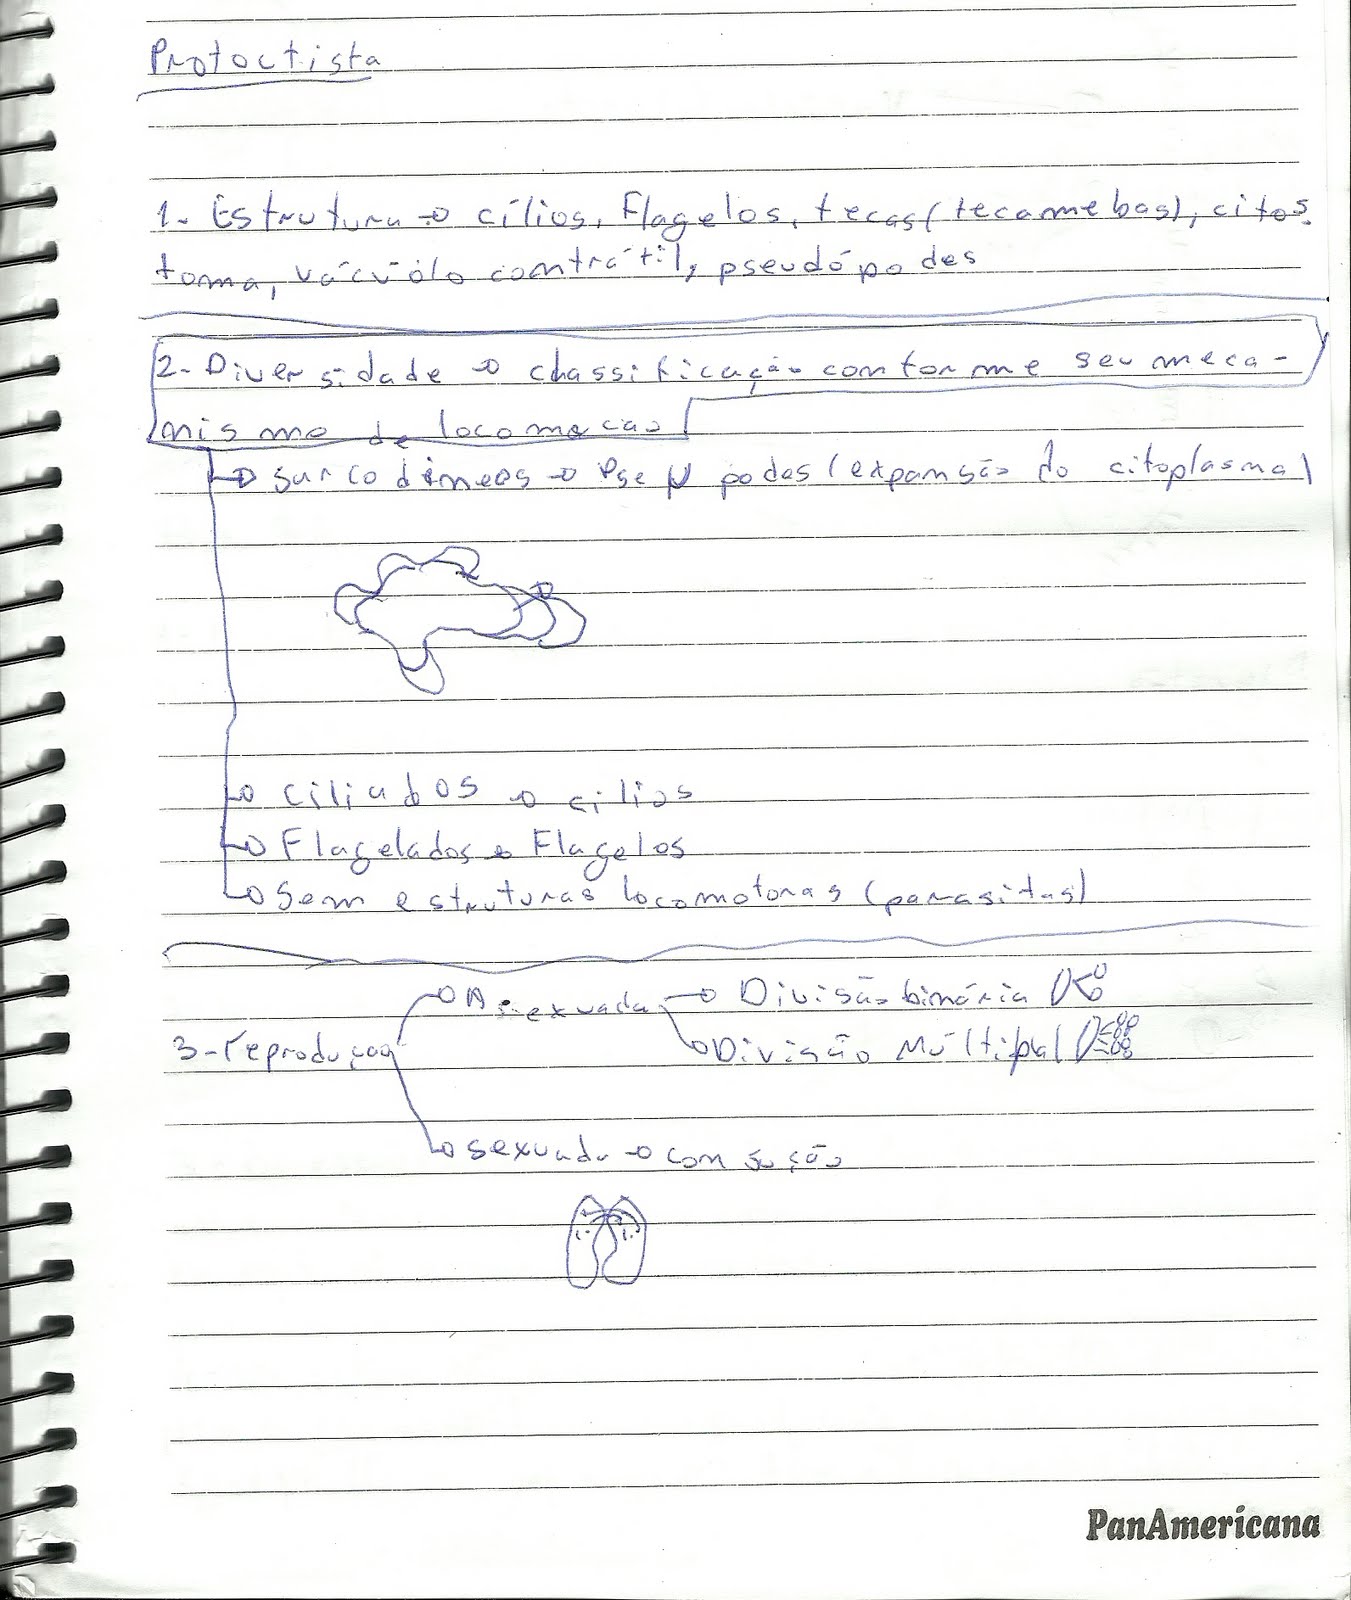 Protoctista
1- Estrutura → cílios, Flagelos, tecas (tecamebas), citos
toma, vácúolo contrátil, pseudópodes
2- Diversidade → classificação conforme seu meca-
nismo de locomoção
→ Sarcodíneos → (expansão do citoplasma)
→ ciliados → cílios
→ Flagelados → Flagelos
→ Sem estruturas locomotoras (parasitas)
→ Assexuada → Divisão binária
3- reprodução → Divisão Múltipla
→ sexuada →
PanAmericana